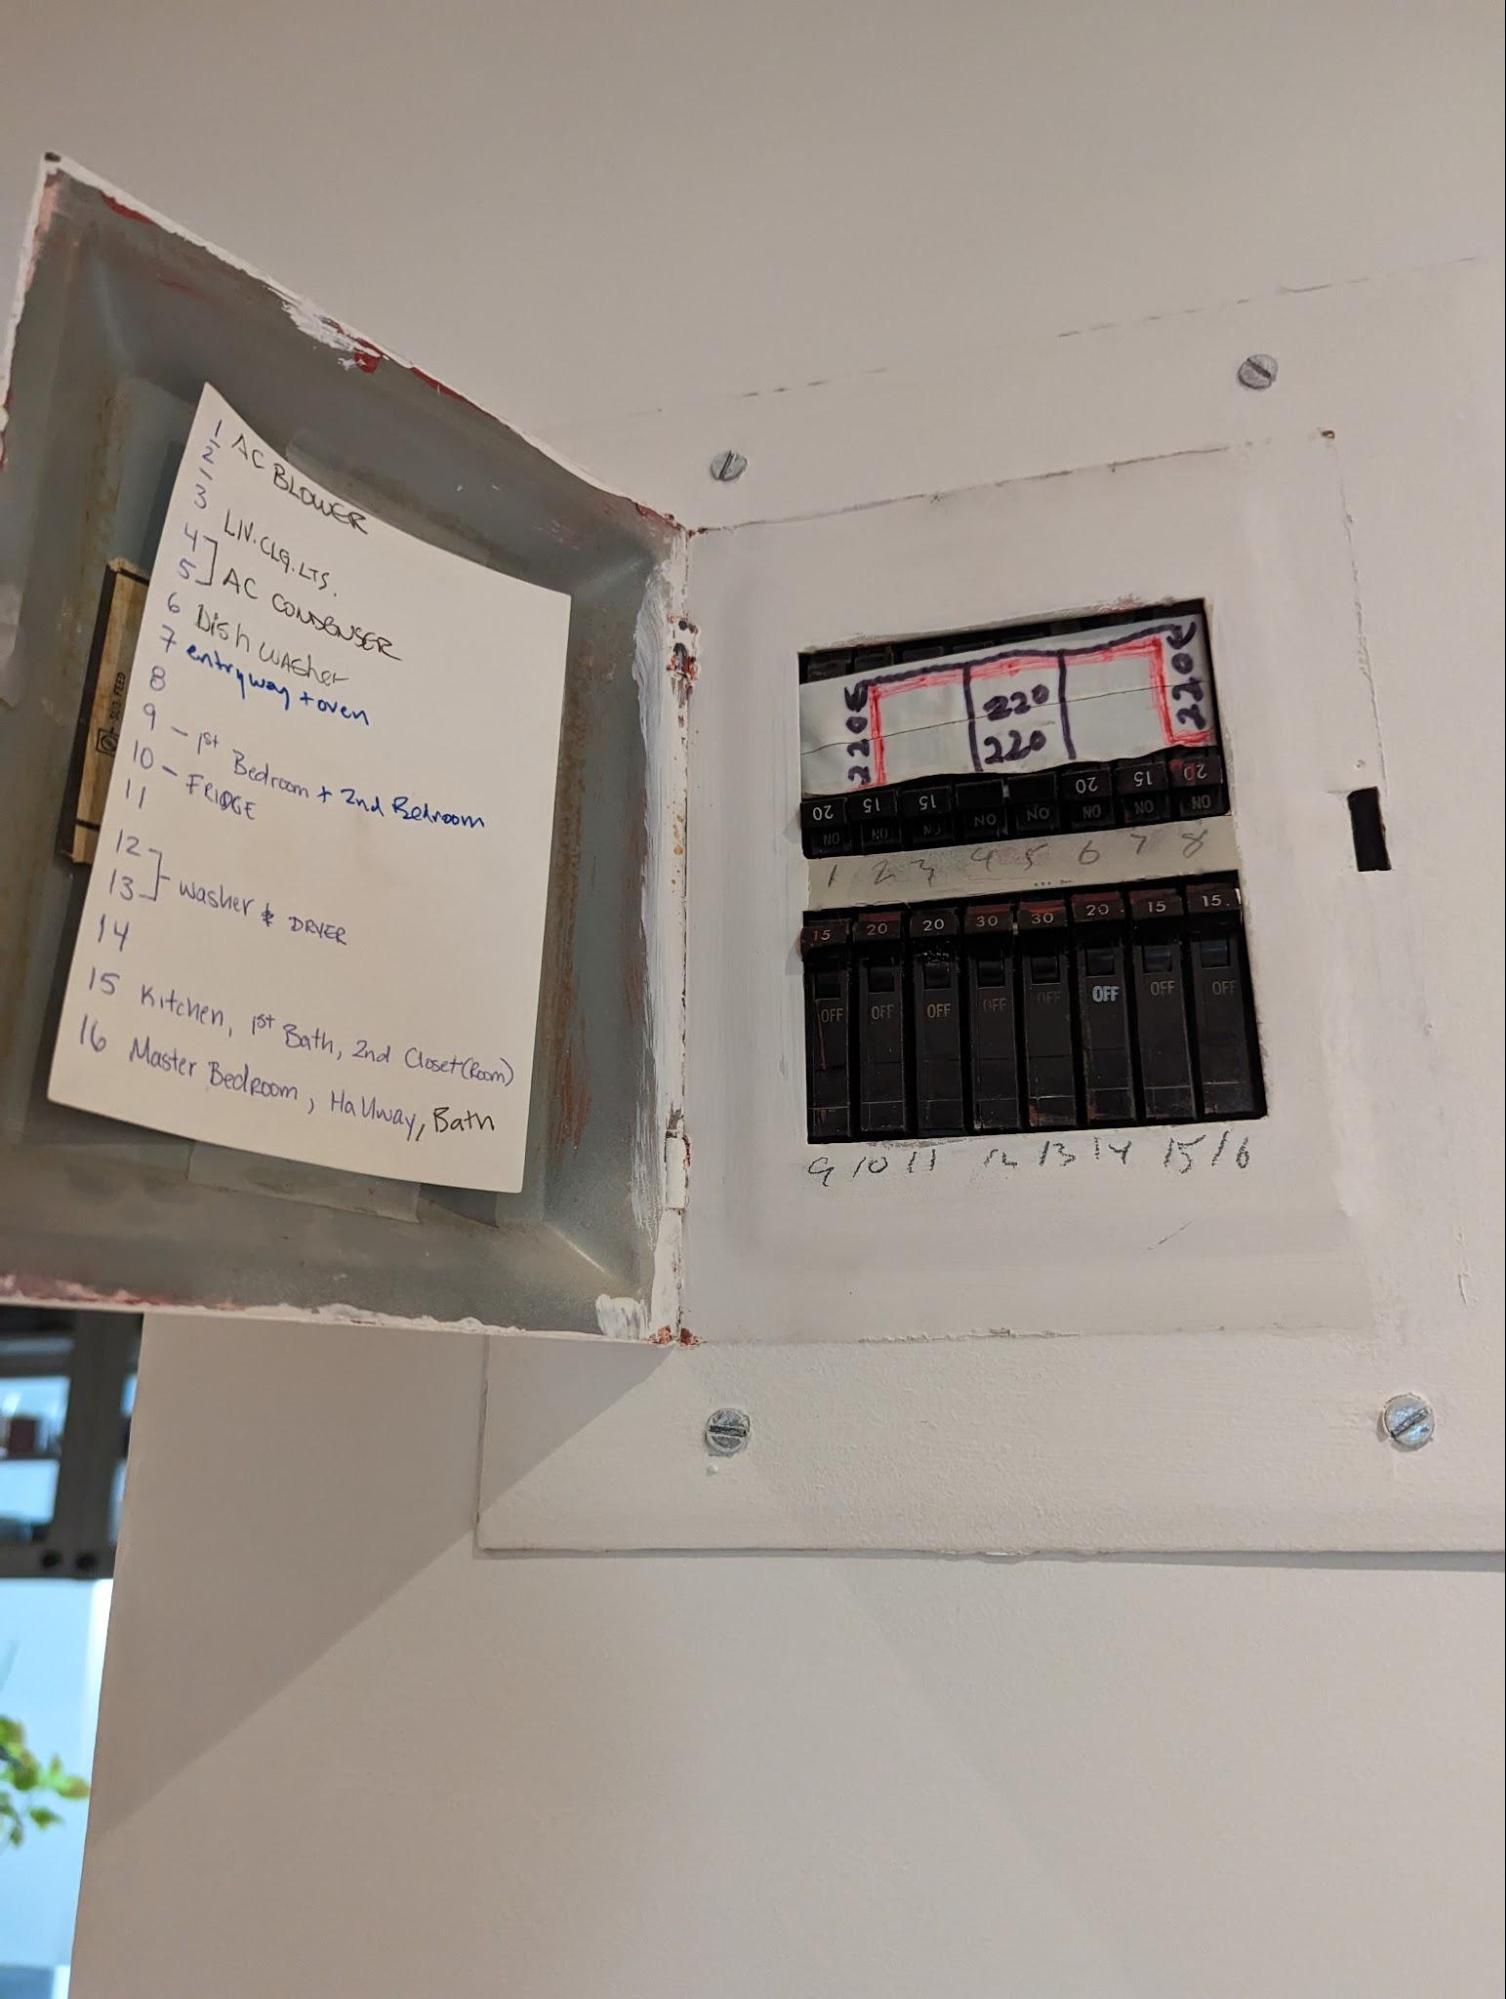 1 AC BLOWER
2
3 LIV.CLG.LTS.
4
5 AC CONDENSER
6 Dishwasher
7 entryway + oven
8
9 - 1st Bedroom + 2nd Bedroom
10 - FRIDGE
11
12
13 washer & DRYER
14
15 Kitchen, 1st Bath, 2nd Closet (Room)
16 Master Bedroom, Hallway, Bath
220
220
20 15 15 20 15 20
ON ON ON ON ON ON ON ON
1 2 3 4 5 6 7 8
15 20 20 30 30 20 15 15
OFF OFF OFF OFF OFF OFF OFF OFF
9 10 11 12 13 14 15 16